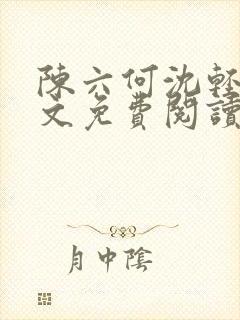 陳六何沈輕
文免費閱讀
月中陰